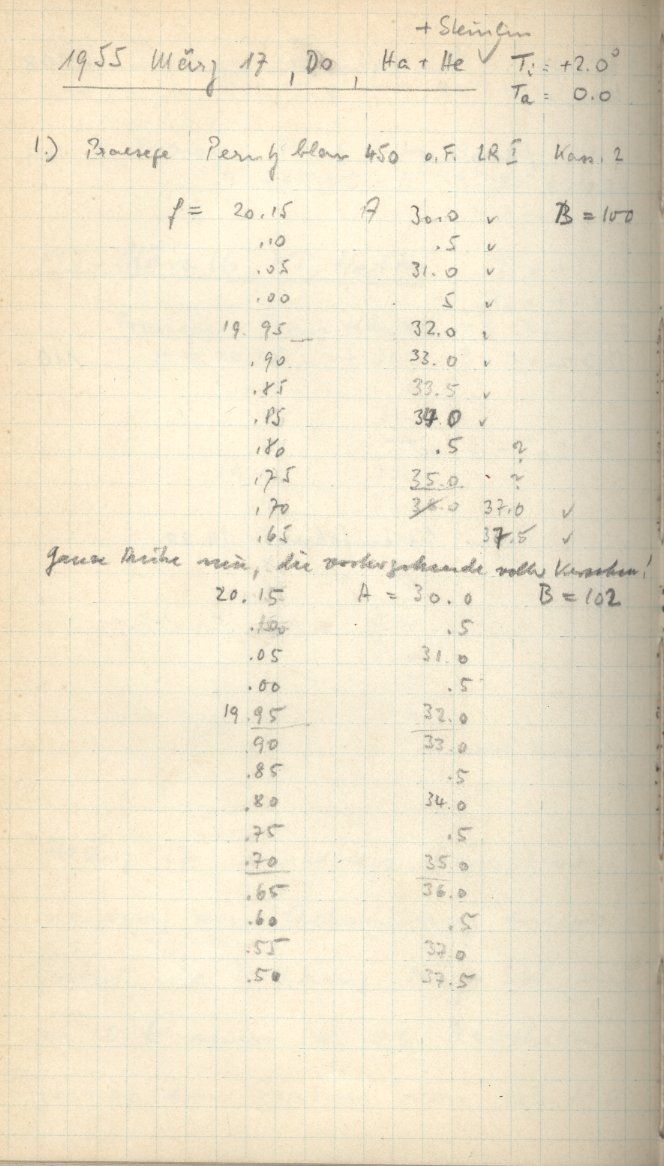 + Steinlin
1955 März 17, Do, Ha + He Ti = +2.0°
Ta = 0.0
1.) Praesepe Perutz blau 450 o.F. 2R I Kass. 2
f = 20.15 A 30.0 ✓ B = 100
.10 .5 ✓
.05 31.0 ✓
.00 5 ✓
19.95 32.0 ✓
.90 33.0 ✓
.85 33.5 ✓
.85 34.0 ✓
.80 .5 ?
.75 35.0 ?
.70 36.0 37.0 ✓
.65 37.5 ✓
ganze Reihe neu, die vorhergehende voller !
20.15 A = 30.0 B = 102
.10 .5
.05 31.0
.00 .5
19.95 32.0
.90 33.0
.85 .5
.80 34.0
.75 .5
.70 35.0
.65 36.0
.60 .5
.55 37.0
.50 37.5